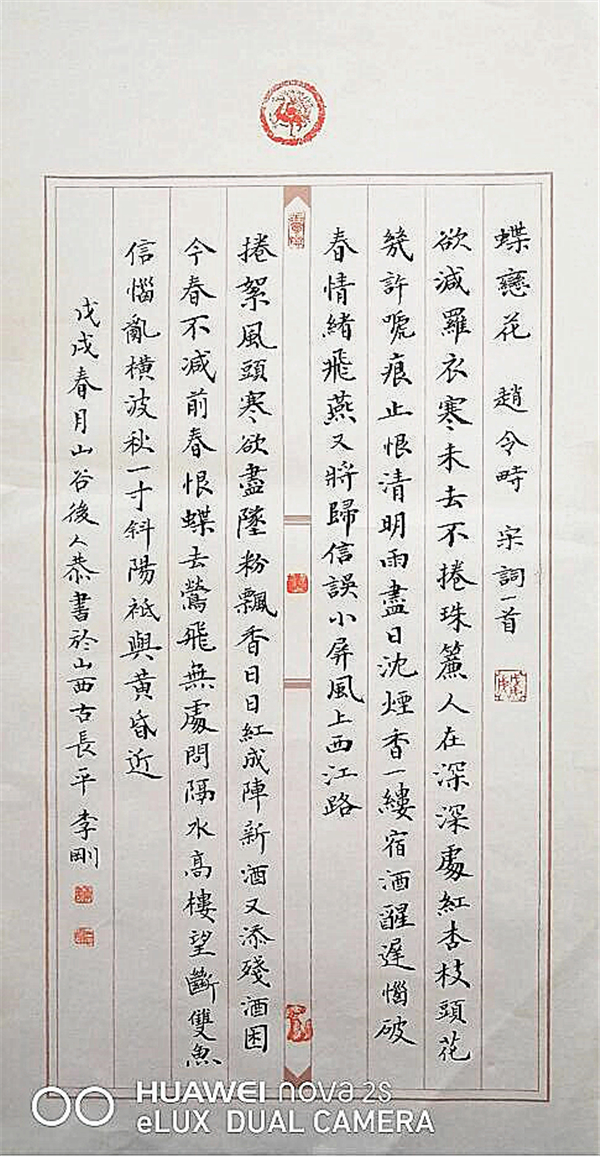 蝶戀花　趙令畤　宋詞一首
欲減羅衣寒未去不捲珠簾人在深深處紅杏枝頭花
幾許嗁痕止恨清明雨盡日沈煙香一縷宿酒醒遲惱破
春情緒飛燕又將歸信誤小屏風上西江路
捲絮風頭寒欲盡墜粉飄香日日紅成陣新酒又添殘酒困
今春不減前春恨蝶去鶯飛無處問隔水高樓望斷雙魚
信惱亂橫波秋一寸斜陽衹與黃昏近
戊戌春月山谷後人恭書於山西古長平李剛
HUAWEI nova 2s
eLUX DUAL CAMERA